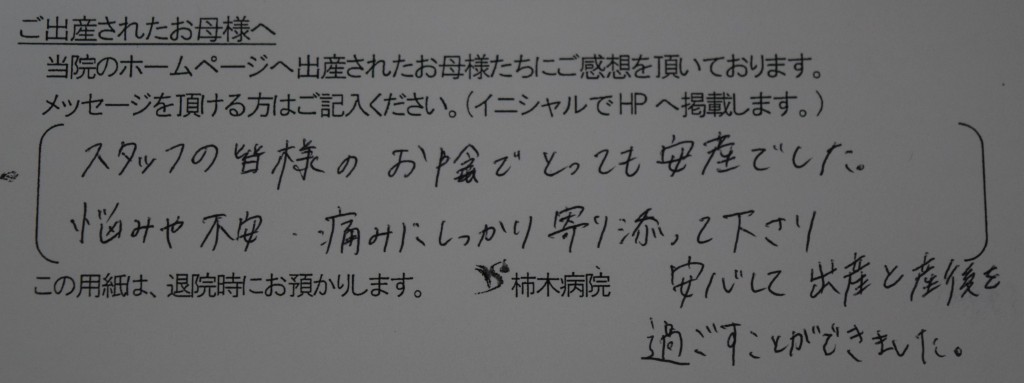 ご出産されたお母様へ
当院のホームページへ出産されたお母様たちにご感想を頂いております。
メッセージを頂ける方はご記入ください。(イニシャルでHPへ掲載します。)
スタッフの皆様のお陰でとっても安産でした。
悩みや不安・痛みにしっかり寄り添って下さり
安心して出産と産後を
過ごすことができました。
この用紙は、退院時にお預かりします。 柿木病院